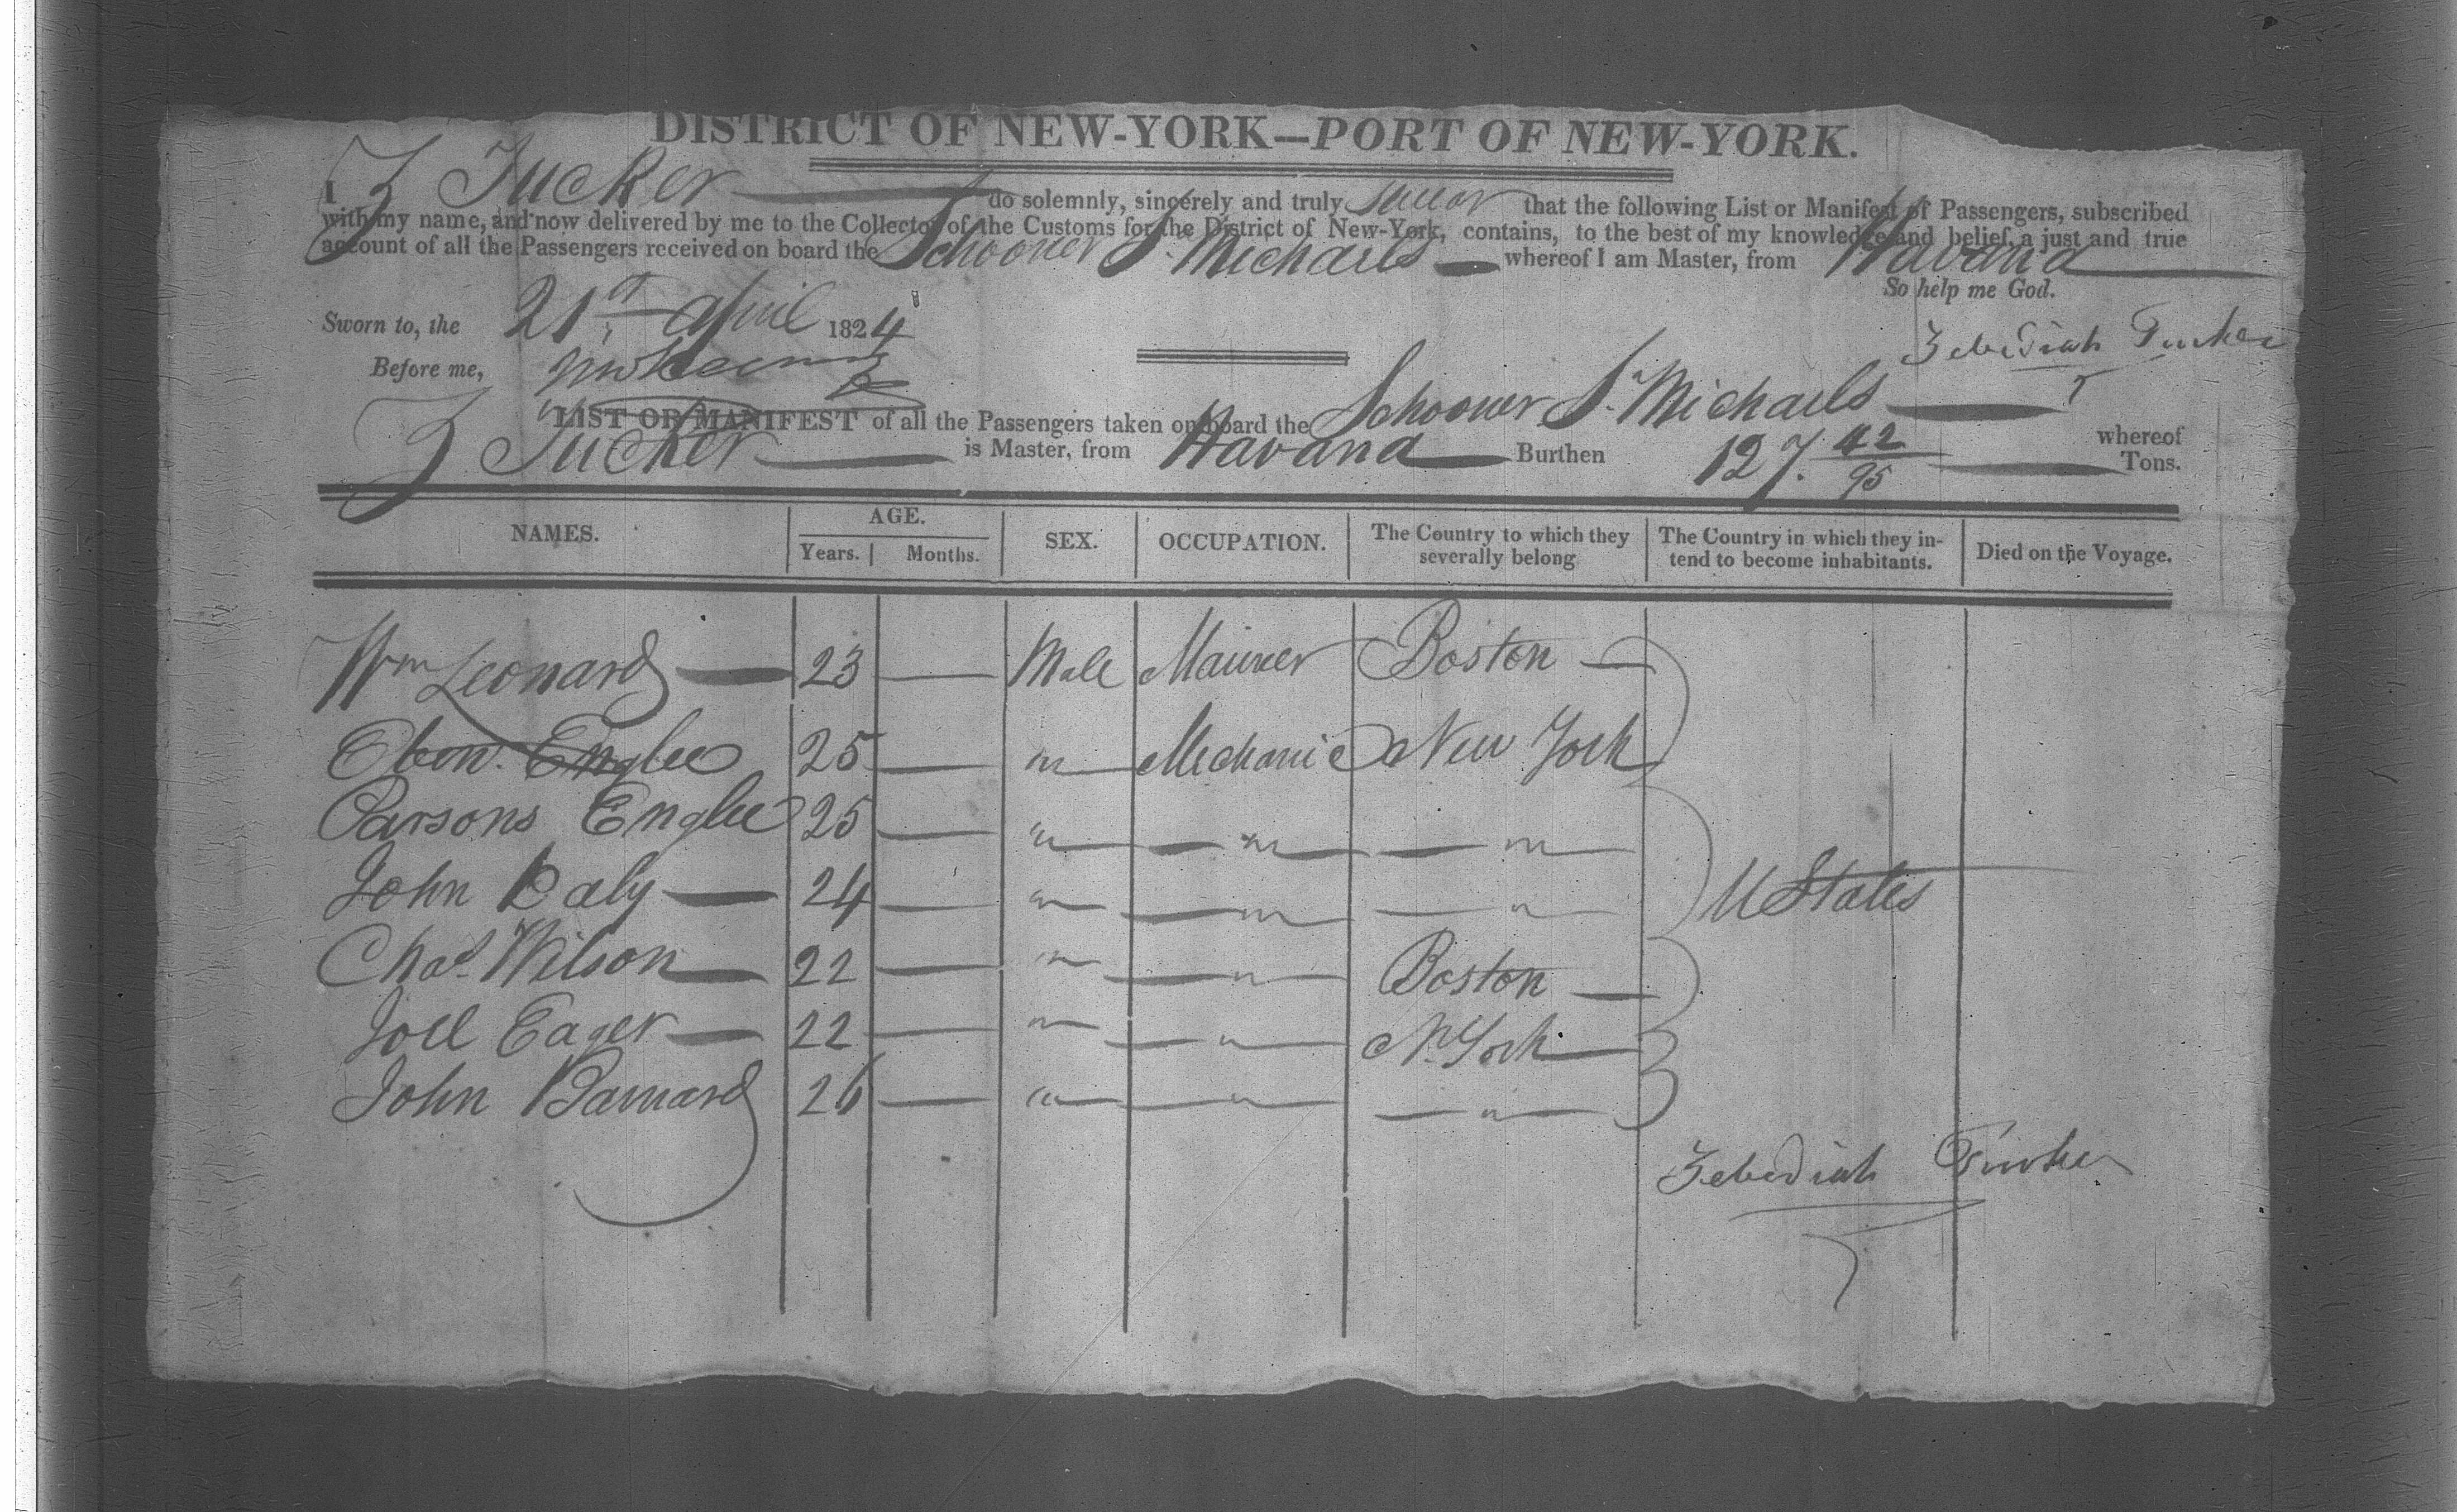 DISTRICT OF NEW-YORK—PORT OF NEW-YORK.
I Z Tucker do solemnly, sincerely and truly swear that the following List or Manifest of Passengers, subscribed
with my name, and now delivered by me to the Collector of the Customs for the District of New-York, contains, to the best of my knowledge and belief, a just and true
account of all the Passengers received on board the Schooner St. Michaels whereof I am Master, from Havana
So help me God.
Sworn to, the 21st April 1824
Zebediah Tucker
Before me,
LIST OR MANIFEST of all the Passengers taken on board the Schooner St. Michaels whereof
Z Tucker is Master, from Havana Burthen 127. 42/95 Tons.
NAMES. AGE. SEX. OCCUPATION. The Country to which they severally belong The Country in which they intend to become inhabitants. Died on the Voyage.
Years. Months.
Wm Leonard — 23 — Male Mariner Boston —
Eben. Englee 25 — " Mechanic New York
Parsons Englee 25 — " — " — — " —
John Daly — 24 — " — " — — " — U States
Chas. Wilson — 22 — " — " — Boston —
Joel Eager — 22 — " — " — N. York —
John Barnard 26 — " — " — — " —
Zebediah Tucker